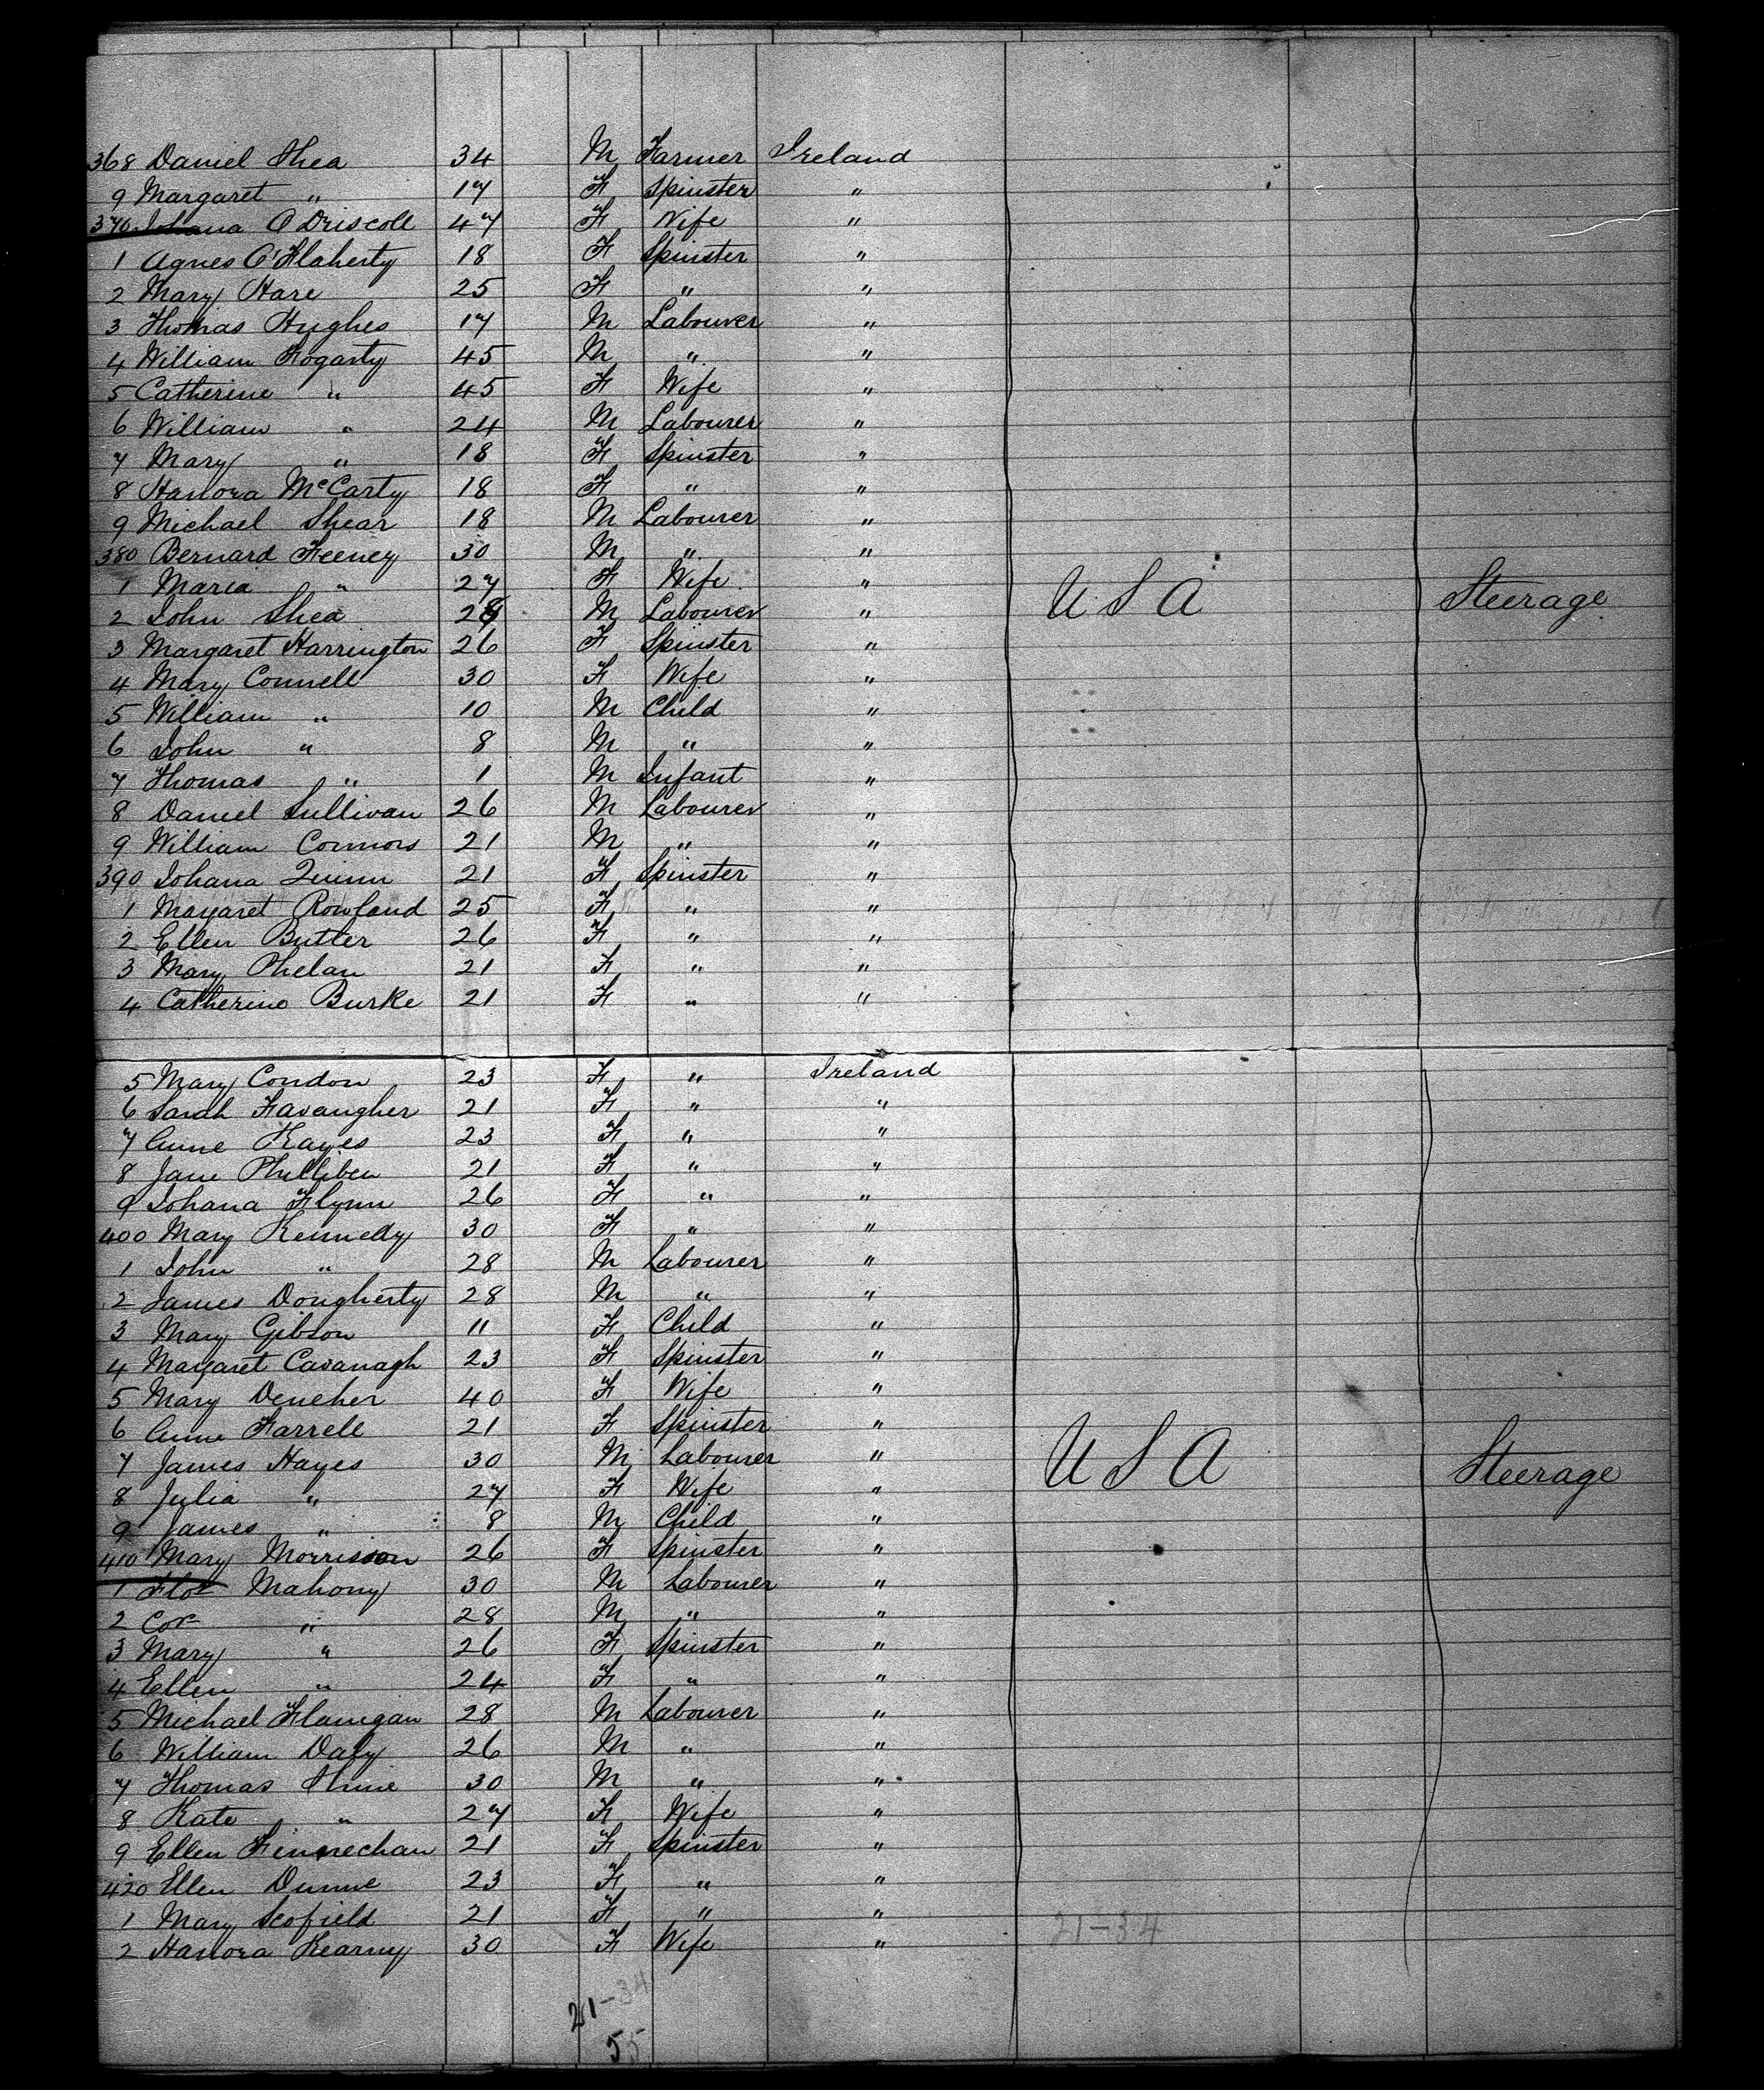 368 Daniel Shea 34 M Farmer Ireland
9 Margaret " 17 F Spinster "
370 Johana O'Driscoll 47 F Wife "
1 Agnes O'Flaherty 18 F Spinster "
2 Mary Hare 25 F " "
3 Thomas Hughes 17 M Labourer "
4 William Fogarty 45 M " "
5 Catherine " 45 F Wife "
6 William " 24 M Labourer "
7 Mary " 18 F Spinster "
8 Hanora McCarty 18 F " "
9 Michael Shear 18 M Labourer "
380 Bernard Feeney 30 M " "
1 Maria " 27 F Wife "
2 John Shea M Labourer " U S A Steerage
3 Margaret Harrington 26 F Spinster "
4 Mary Connell 30 F Wife "
5 William " 10 M Child "
6 John " 8 M " "
7 Thomas " 1 M Infant "
8 Daniel Sullivan 26 M Labourer "
9 William Connors 21 M " "
390 Johana Quinn 21 F Spinster "
1 Margaret Rowland 25 F " "
2 Ellen Butler 26 F " "
3 Mary Phelan 21 F " "
4 Catherine Burke 21 F " "
5 Mary Condon 23 F " Ireland
6 Sarah Favaugher 21 F " "
7 Anne Hayes 23 F " "
8 Jane Philliben 21 F " "
9 Johana Flynn 26 F " "
400 Mary Kennedy 30 F " "
1 John " 28 M Labourer "
2 James Dougherty 28 M " "
3 Mary Gibson 11 F Child "
4 Margaret Cavanagh 23 F Spinster "
5 Mary Deneher 40 F Wife "
6 Anne Farrell 21 F Spinster "
7 James Hayes 30 M Labourer " U S A Steerage
8 Julia " 27 F Wife "
9 James " 8 M Child "
410 Mary Morrison 26 F Spinster "
1 Flor Mahony 30 M Labourer "
2 Cor " 28 M " "
3 Mary " 26 F Spinster "
4 Ellen " 24 F " "
5 Michael Flanigan 28 M Labourer "
6 William Daly 26 M " "
7 Thomas Shine 30 M " "
8 Kate " 27 F Wife "
9 Ellen Finnechan 21 F Spinster "
420 Ellen Dunne 23 F " "
1 Mary Scofield 21 F " "
2 Hanora Kearny 30 F Wife "
21-34
21-34
55